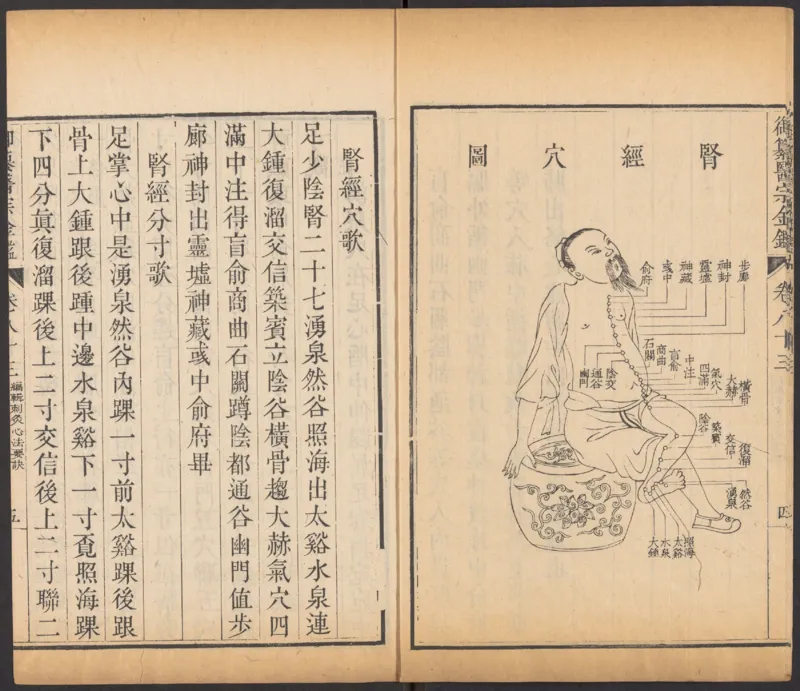 御纂醫宗金鑑
卷八十三
四
腎經穴圖
步廊
神封
靈墟
神藏
彧中
俞府
石關
商曲
肓俞
中注
四滿
氣穴
大赫
橫骨
陰交
通谷
幽門
陰谷
築賓
交信
復溜
然谷
湧泉
照海
太谿
水泉
大鍾
腎經穴歌
足少陰腎二十七湧泉然谷照海出太谿水泉連
大鍾復溜交信築賓立陰谷橫骨趨大赫氣穴四
滿中注得肓俞商曲石關蹲陰都通谷幽門值步
廊神封出靈墟神藏彧中俞府畢
腎經分寸歌
足掌心中是湧泉然谷內踝一寸前太谿踝後跟
骨上大鍾跟後踵中邊水泉谿下一寸覔照海踝
下四分眞復溜踝後上二寸交信後上二寸聯二
御纂醫宗金鑑
卷八十三
編輯刺灸心法要訣
五